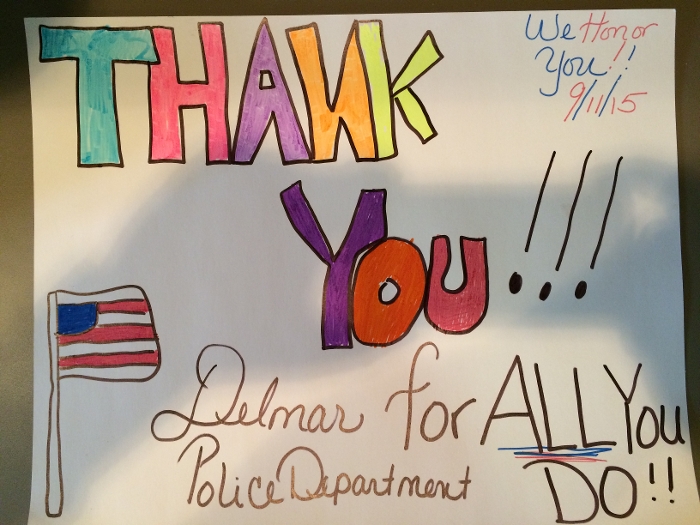 THANK
We Honor
You!!
9/11/15
YOU!!!
Delmar for ALL You
Police Department DO!!